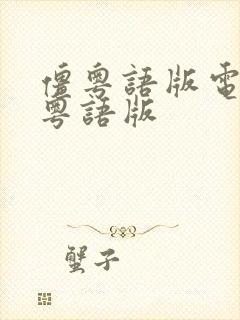 僵粵語版電
粵語版
蟹子